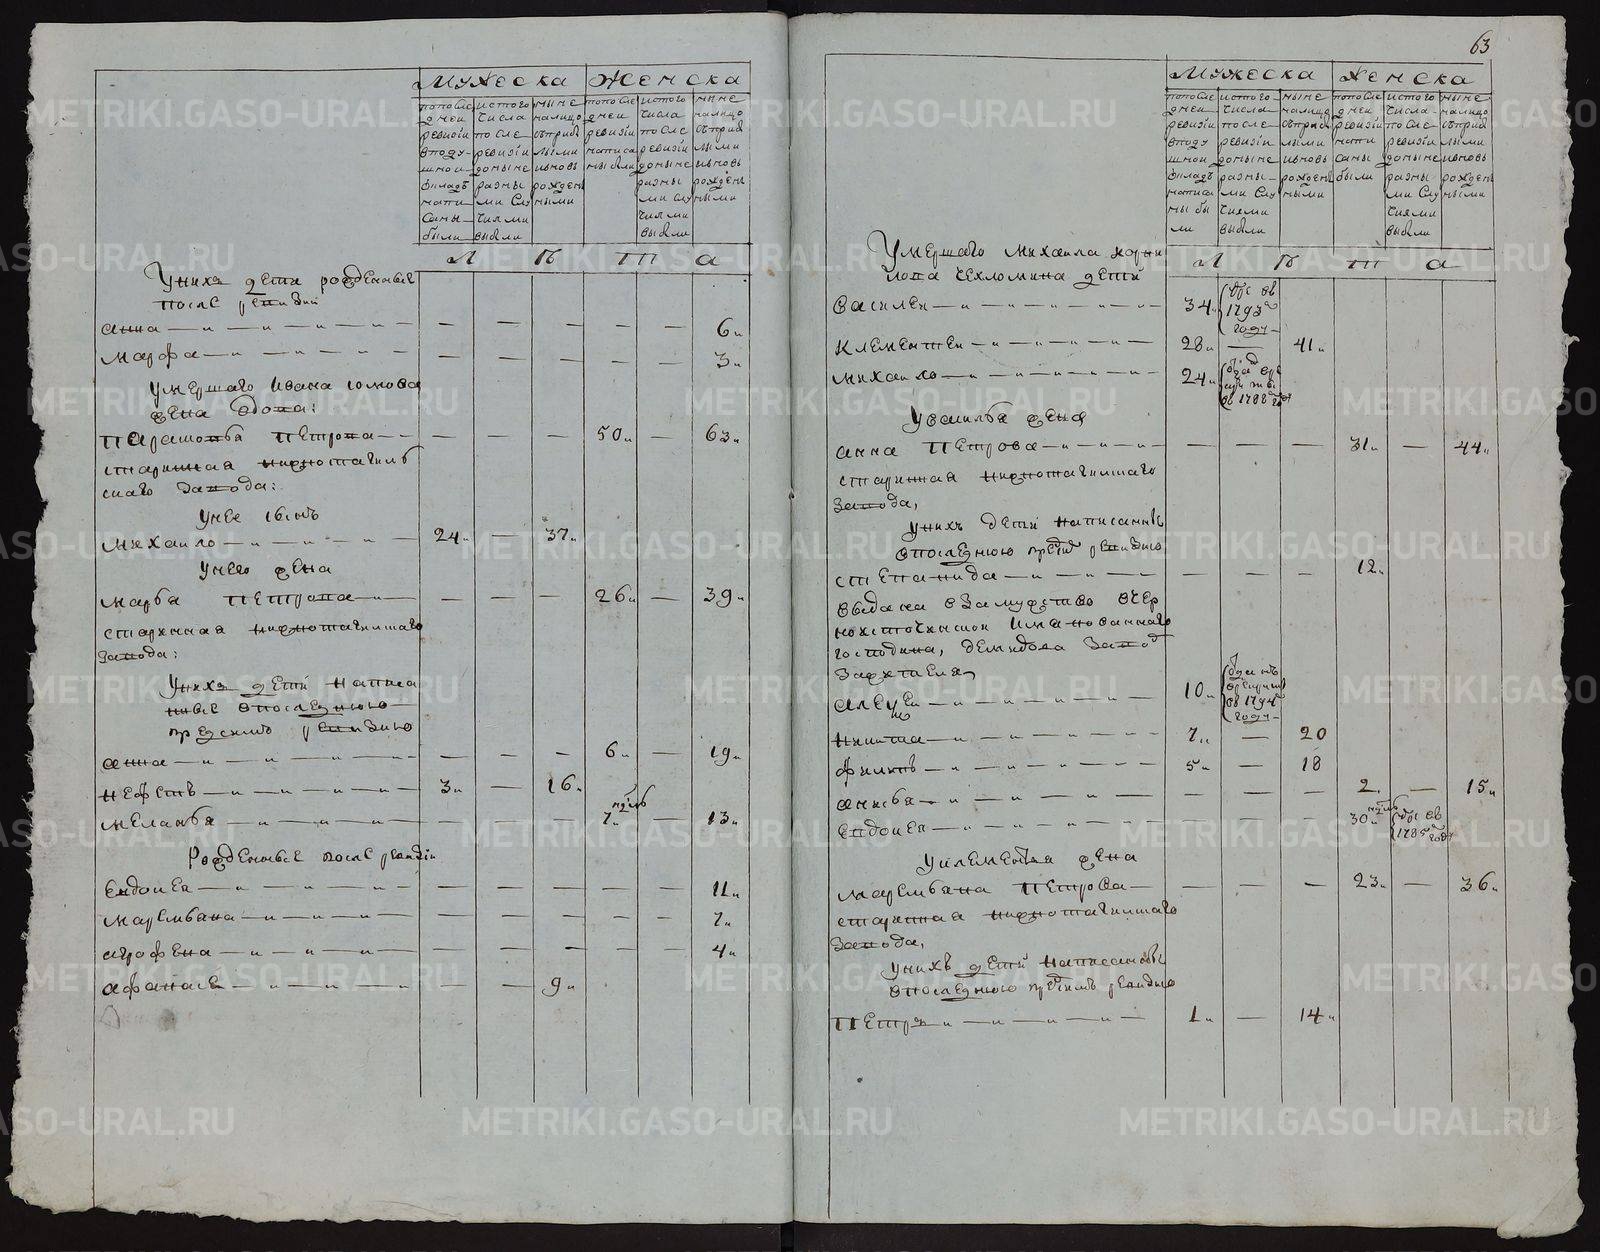 63
Мужеска Женска
попосле
дней
ревизiи
вподу-
шной
окладъ
напи-
саны-
были
истого
числа
по сле
ревизiи
доныне
разны
ми слу
чаями
выбыли
ныне
налицо
съприб
лыми
ивновь
рожден
ными
попосле
дней
ревизiи
написа
ны были
истого
числа
по сле
ревизiи
доныне
разны
ми слу
чаями
выбыли
ныне
налицо
съприб
лыми
ивновь
рожден
ными
Л ѣ т а
Унихъ дети рожденные
после ревизiи
анна — — — — — 6
марфа — — — — — 3
Умершаго ивана
жена вдова:
Парасковья Петрова — — — 50 — 63
старинная нижнотагиль
скаго завода:
Унее сынъ
михаило 24 — 37
Унего жена
марья Петрова — — — 26 — 39
старинная нижнотагилскаго
завода:
Унихъ дети написа
нные впоследнюю
предсимъ ревизию
анна — — — 6 — 19
3 — 16
меланья — — — 13
Рожденные после ревизiи
евдокея — — — — — 11
маремьяна — — — — — 7
аграфена — — — — — 4
афанасеи — — 9
Мужеска Женска
попосле
дней
ревизiи
вподу
шной
окладъ
написа
ны бы
ли
истого
числа
после
ревизiи
доныне
разны
ми слу
чаями
выбыли
ныне
налицо
съприб
лыми
ивновь
рожден
ными
попосле
дней
ревизiи
напи
саны
были
истого
числа
по сле
ревизiи
доныне
разны
ми слу
чаями
выбыли
ныне
налицо
съприб
лыми
ивновь
рожден
ными
Л ѣ т а
Умершаго михаила
дети
василеи 34 1793
году
клементеи 28 — 41
михаило 24
въ 1788 году
Увасилья жена
анна Петрова — — — 31 — 44
старинная нижнотагилскаго
завода,
Унихъ дети написанны
впоследнюю предъ ревизию
степанида — — — 12
выдана взамужство вчер
ноисточинскои
господина, демидова завод
алексеи 10
въ 1794
году
никита 7 — 20
филипъ 5 — 18
анисья — — — 2 — 15
евдокея — — — 1785 году
Уклементья жена
маремьяна Петрова — — — 23 — 36
старинная нижнотагилскаго
завода,
Унихъ дети написанны
впоследнюю предсимъ ревизию
Петръ 1 — 14
METRIKI.GASO-URAL.RU